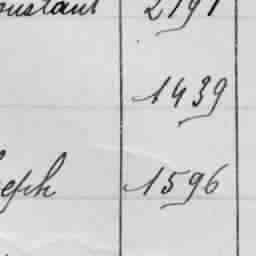 onstant 2191
1439
seph 1596